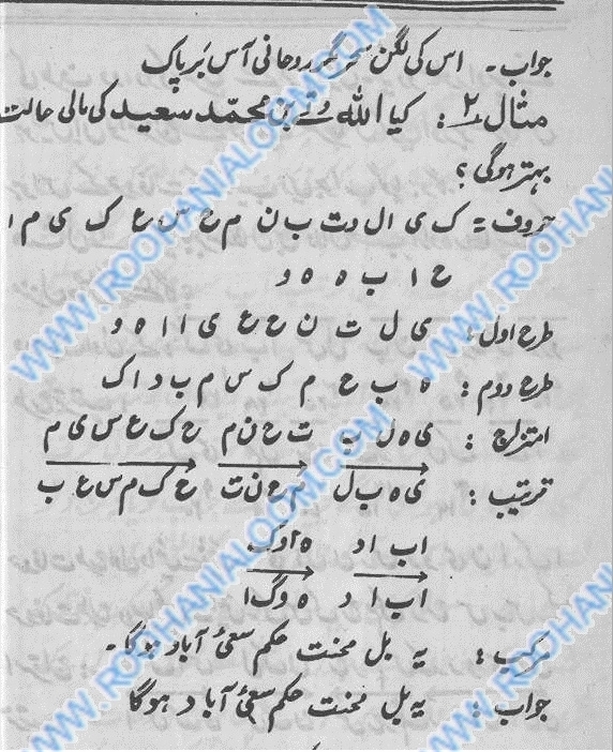 جواب۔ اس کی لگن سحر گر روحانی آس بَر پاک
مثال ۲: کیا اللہ دتے بن محمّد سعید کی مالی حالت
بہتر ہوگی؟
حروف = ک ی ا ل د ت ب ن م ح س ع ک ی م ا
ح ا ب ہ ہ و
طرح اول: ی ل ت ن ح ع ی ا ا ہ و
طرح دوم: ہ ب ح م ک س م ب د ا ک
امتزاج: ی ہ ل ب ت ح ن م ح ک ع س ی م
ترتیب: ی ہ ب ل م ح ن ت ح ک م س ع ب
ا ب ا د ہ ا و ک
ا ب ا د ہ و گ ا
مرکب: یہ بل محنت حکم سعیٔ آباد ہوگا۔
جواب: یہ بل محنت حکم سعیٔ آباد ہوگا
WWW.ROOHANIALOOM.COM